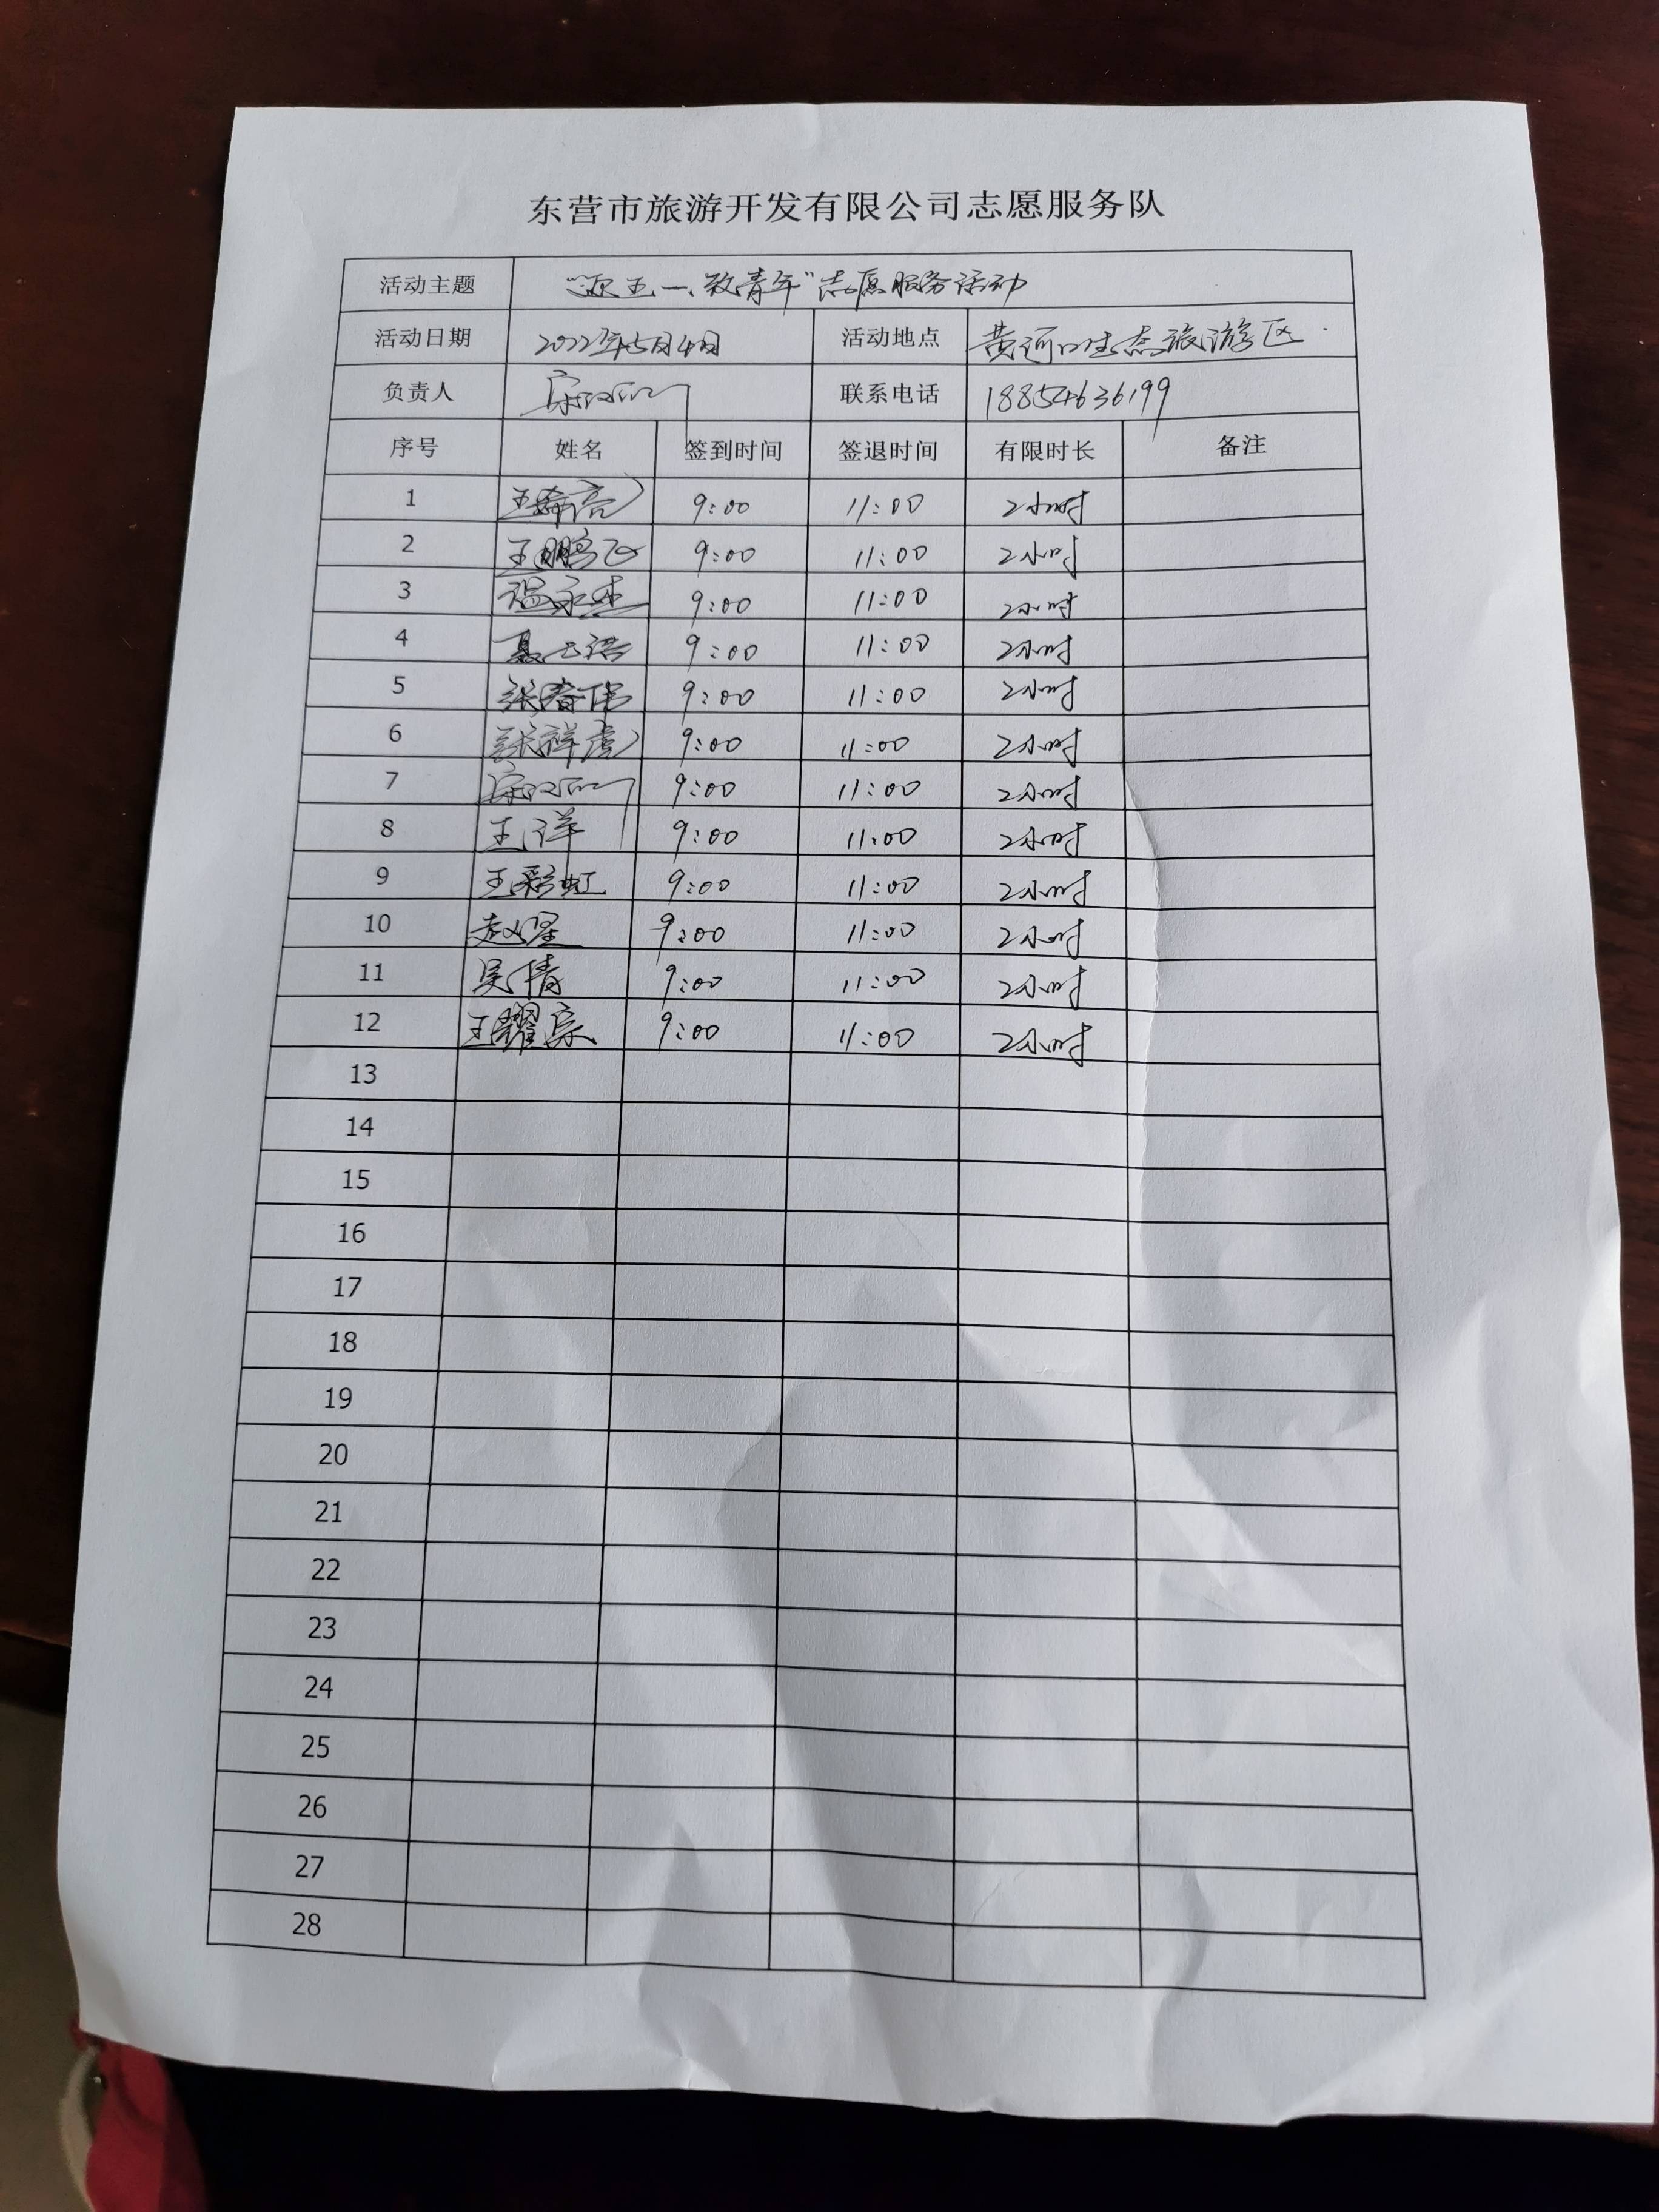 东营市旅游开发有限公司志愿服务队
活动主题 "迎五一、致青年"志愿服务活动
活动日期 2022年5月4日 活动地点 黄河口生态旅游区
负责人 联系电话 18854636199
序号 姓名 签到时间 签退时间 有限时长 备注
1 9:00 11:00 2小时
2 王鹏飞 9:00 11:00 2小时
3 温永杰 9:00 11:00 2小时
4 9:00 11:00 2小时
5 张春伟 9:00 11:00 2小时
6 张祥虎 9:00 11:00 2小时
7 9:00 11:00 2小时
8 王洋 9:00 11:00 2小时
9 王彩虹 9:00 11:00 2小时
10 9:00 11:00 2小时
11 吴倩 9:00 11:00 2小时
12 王耀宗 9:00 11:00 2小时
13
14
15
16
17
18
19
20
21
22
23
24
25
26
27
28